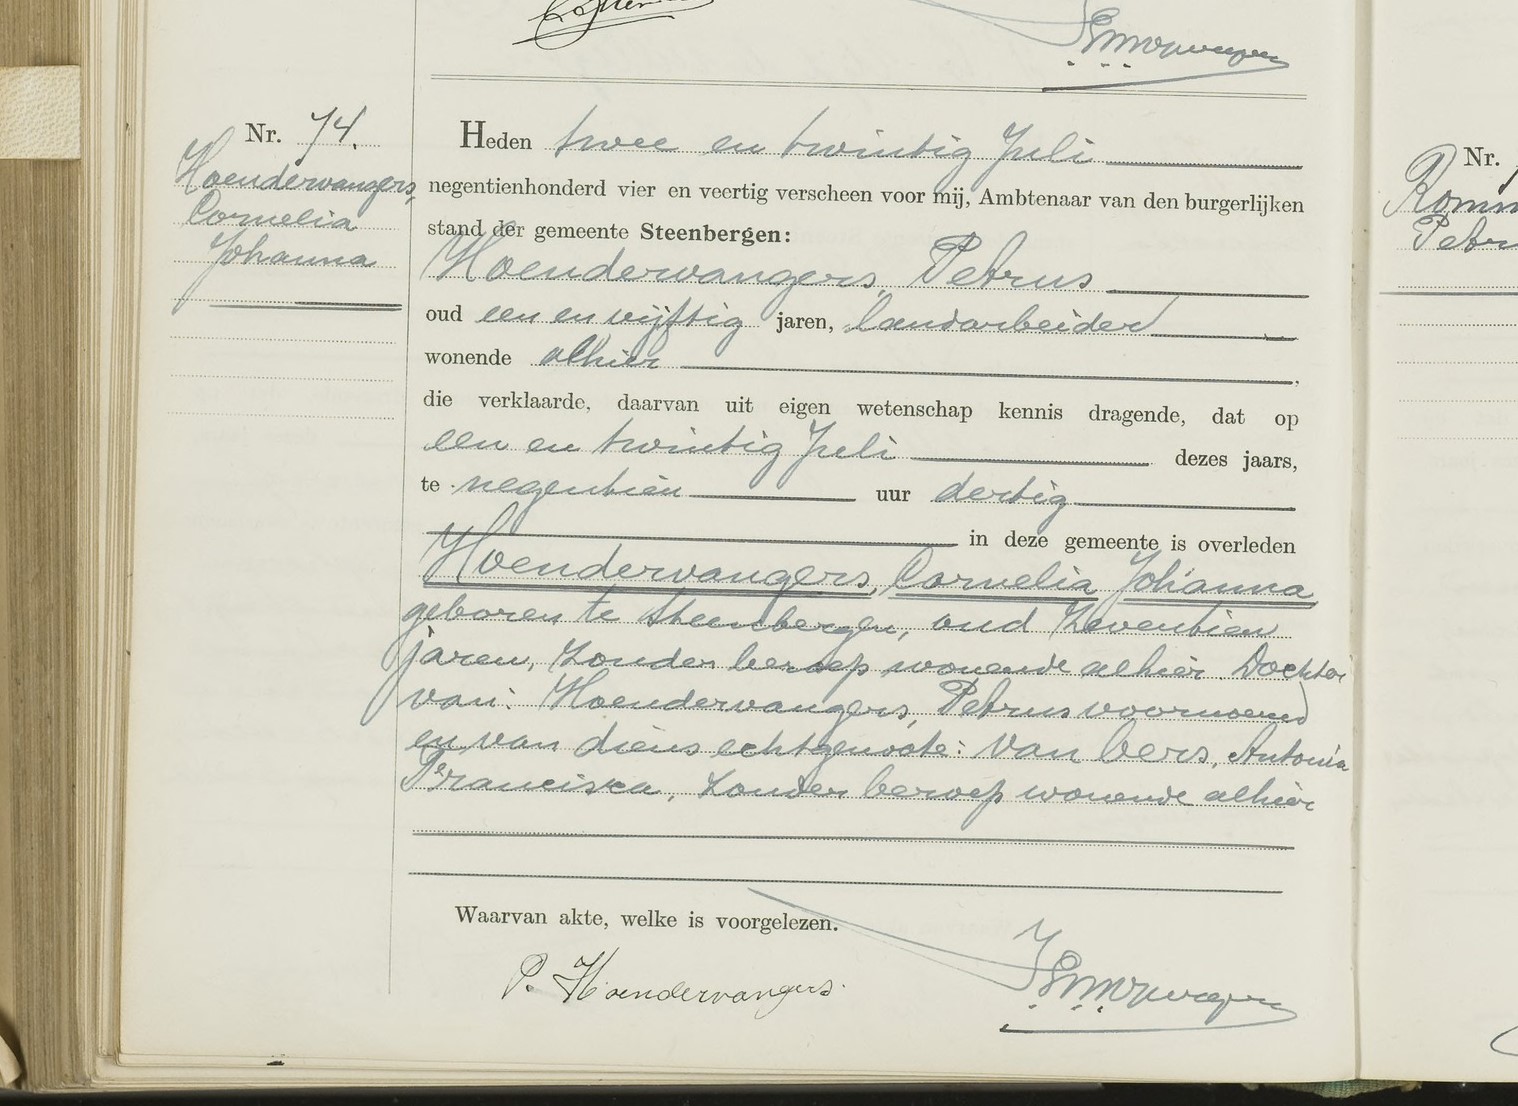 Nr. 74.
Hoendervangers,
Cornelia
Johanna
Heden twee en twintig Juli
negentienhonderd vier en veertig verscheen voor mij, Ambtenaar van den burgerlijken
stand der gemeente Steenbergen:
Hoendervangers, Petrus
oud een en vijftig jaren, landarbeider
wonende alhier,
die verklaarde, daarvan uit eigen wetenschap kennis dragende, dat op
een en twintig Juli dezes jaars,
te negentien uur dertig
in deze gemeente is overleden
Hoendervangers, Cornelia Johanna
geboren te Steenbergen, oud zeventien
jaren, zonder beroep wonende alhier. Dochter
van: Hoendervangers, Petrus voornoemd
en van diens echtgenoote: van Oers, Antonia
Francisca, zonder beroep wonende alhier
Waarvan akte, welke is voorgelezen.
P. Hoendervangers.
Nr.
Romm
Petr